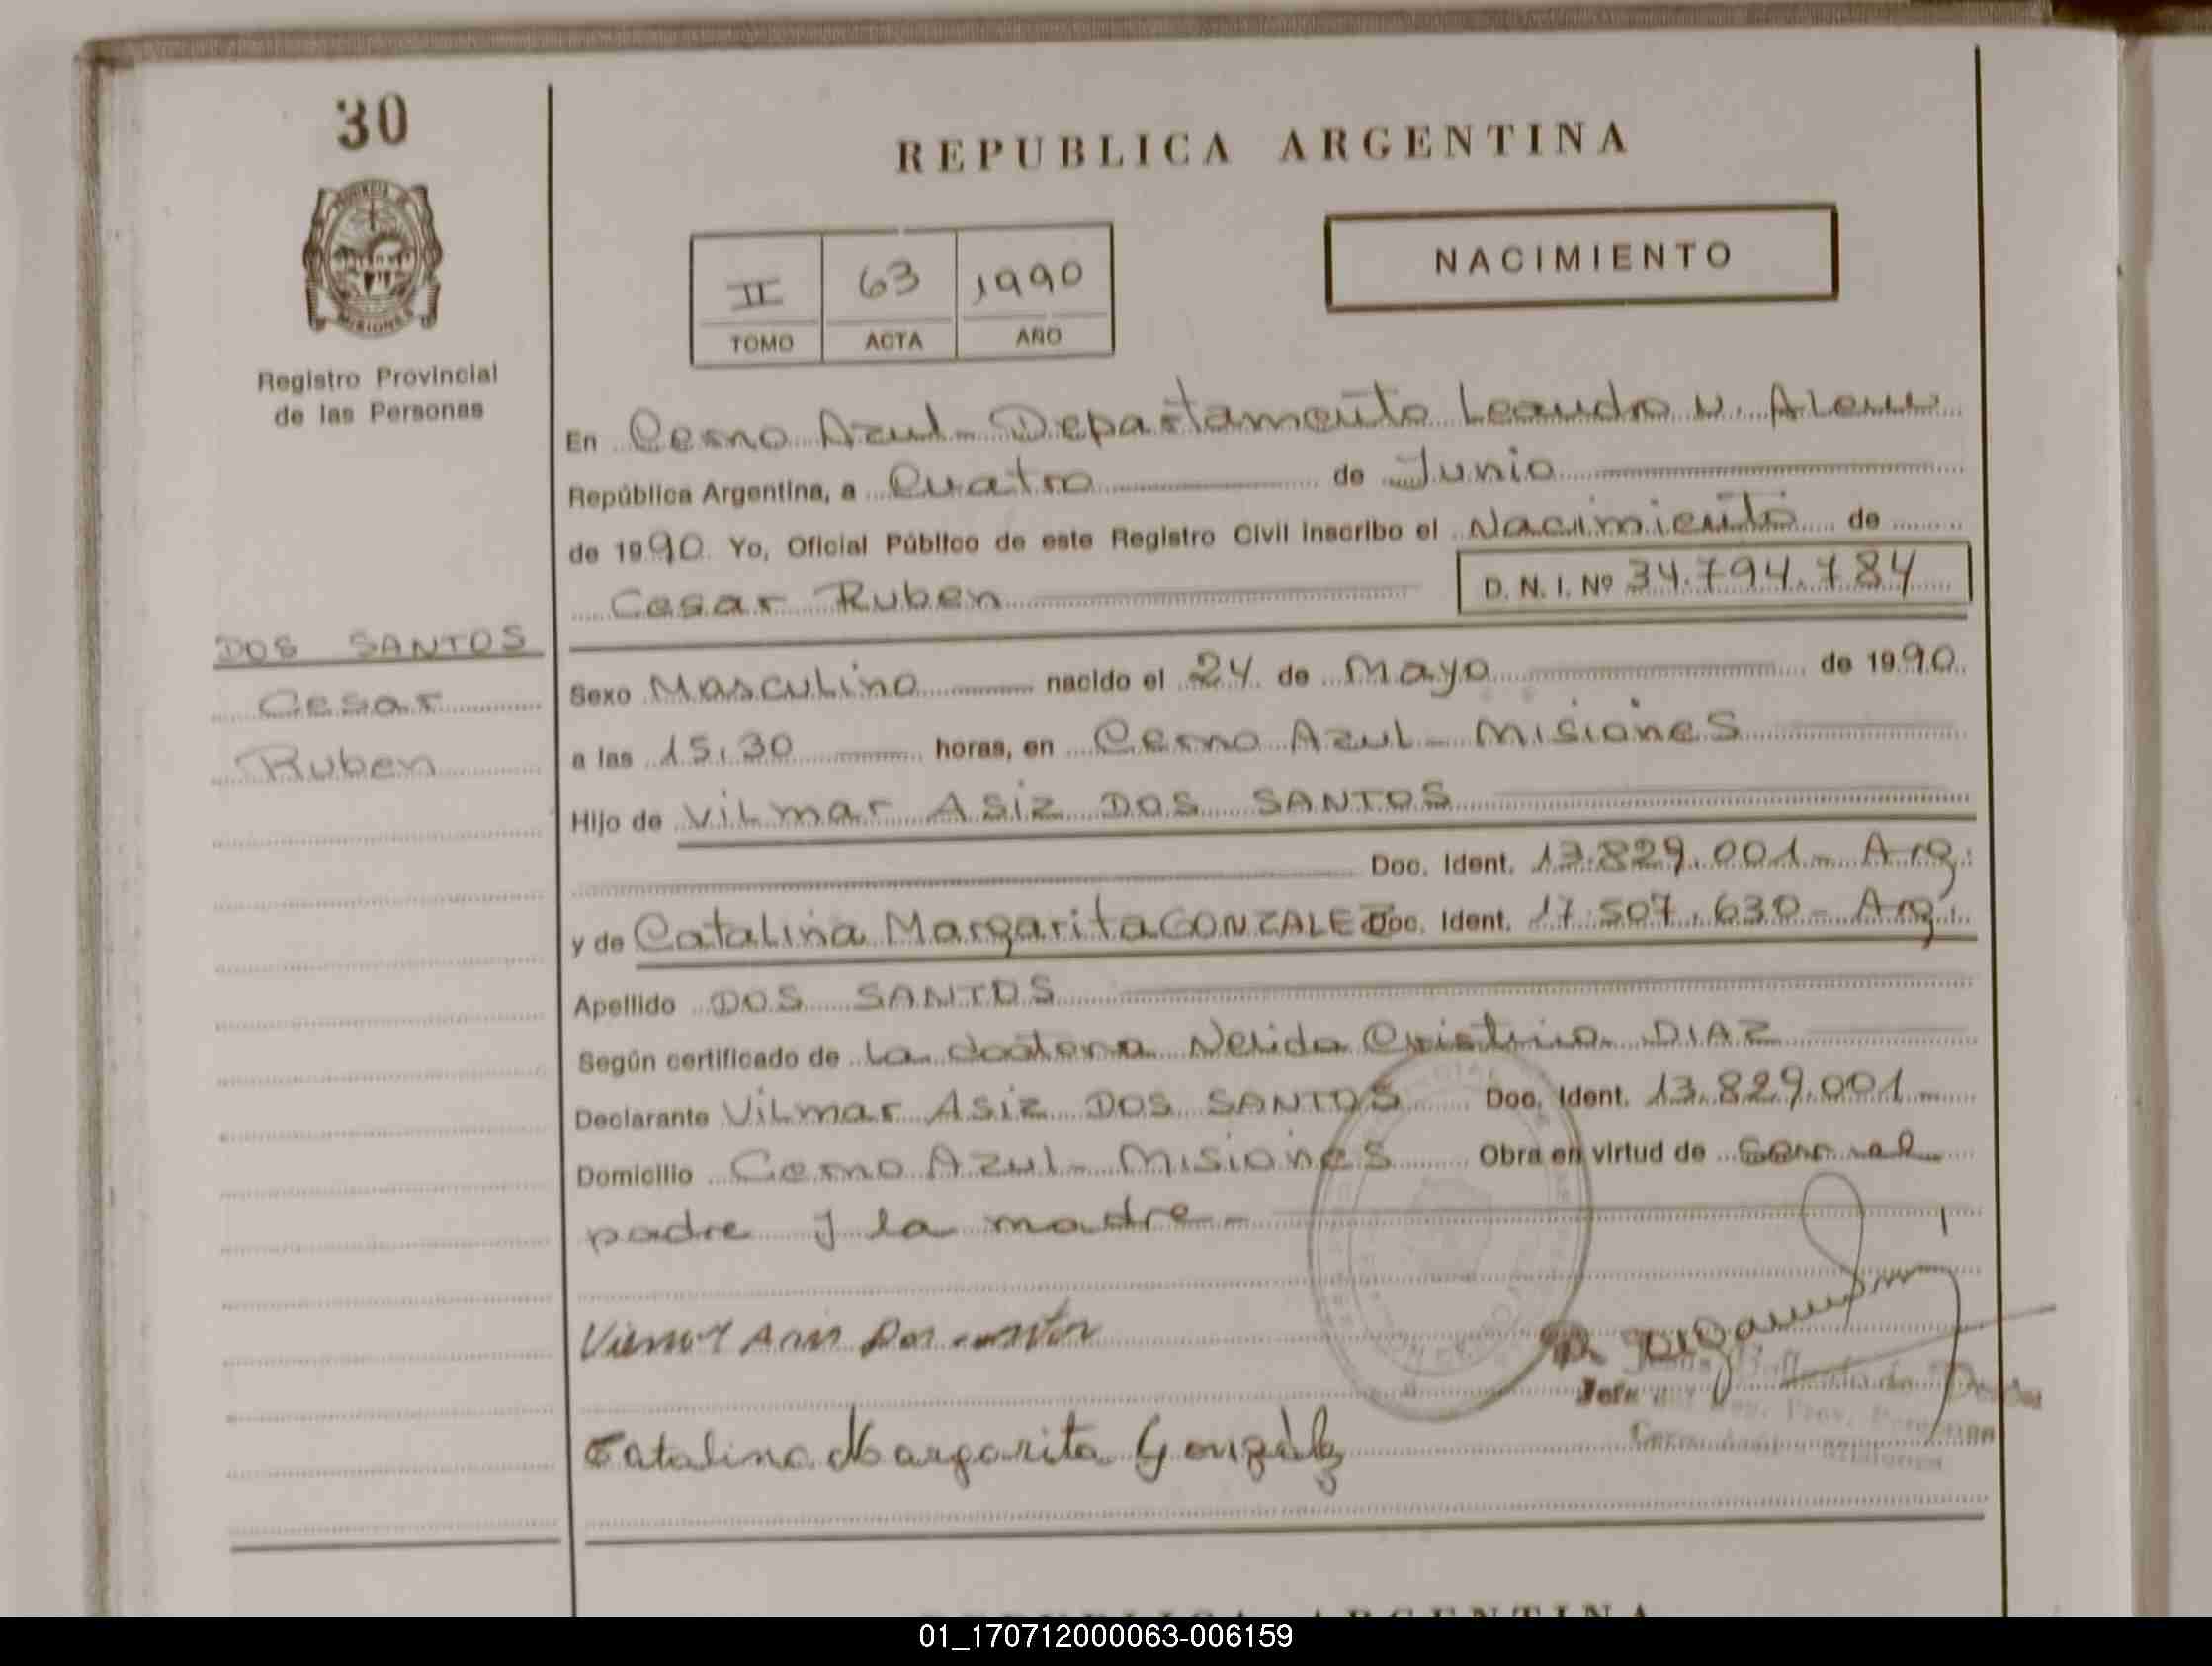 30
REPUBLICA ARGENTINA
NACIMIENTO
II 63 1990
TOMO ACTA AÑO
MISIONES
Registro Provincial
de las Personas
En Cerro Azul - Departamento Leandro N. Alem
República Argentina, a Cuatro de Junio
de 1990 Yo, Oficial Público de este Registro Civil inscribo el Nacimiento de
Cesar Ruben D. N. I. Nº 34.794.784
DOS SANTOS
Cesar
Ruben
Sexo Masculino nacido el 24 de Mayo de 1990
a las 15,30 horas, en Cerro Azul - Misiones
Hijo de Vilmar Asiz DOS SANTOS
Doc. Ident. 13.829.001 - Arg.
y de Catalina Margarita GONZALEZ Doc. Ident. 17.507.630 - Arg.
Apellido DOS SANTOS
Según certificado de La doctora Nelida Cristina DIAZ
Declarante Vilmar Asiz DOS SANTOS Doc. Ident. 13.829.001
Domicilio Cerro Azul - Misiones Obra en virtud de ser el
padre y la madre -
Catalina Margarita Gonzalez
Jefe
REPUBLICA ARGENTINA
01_170712000063-006159